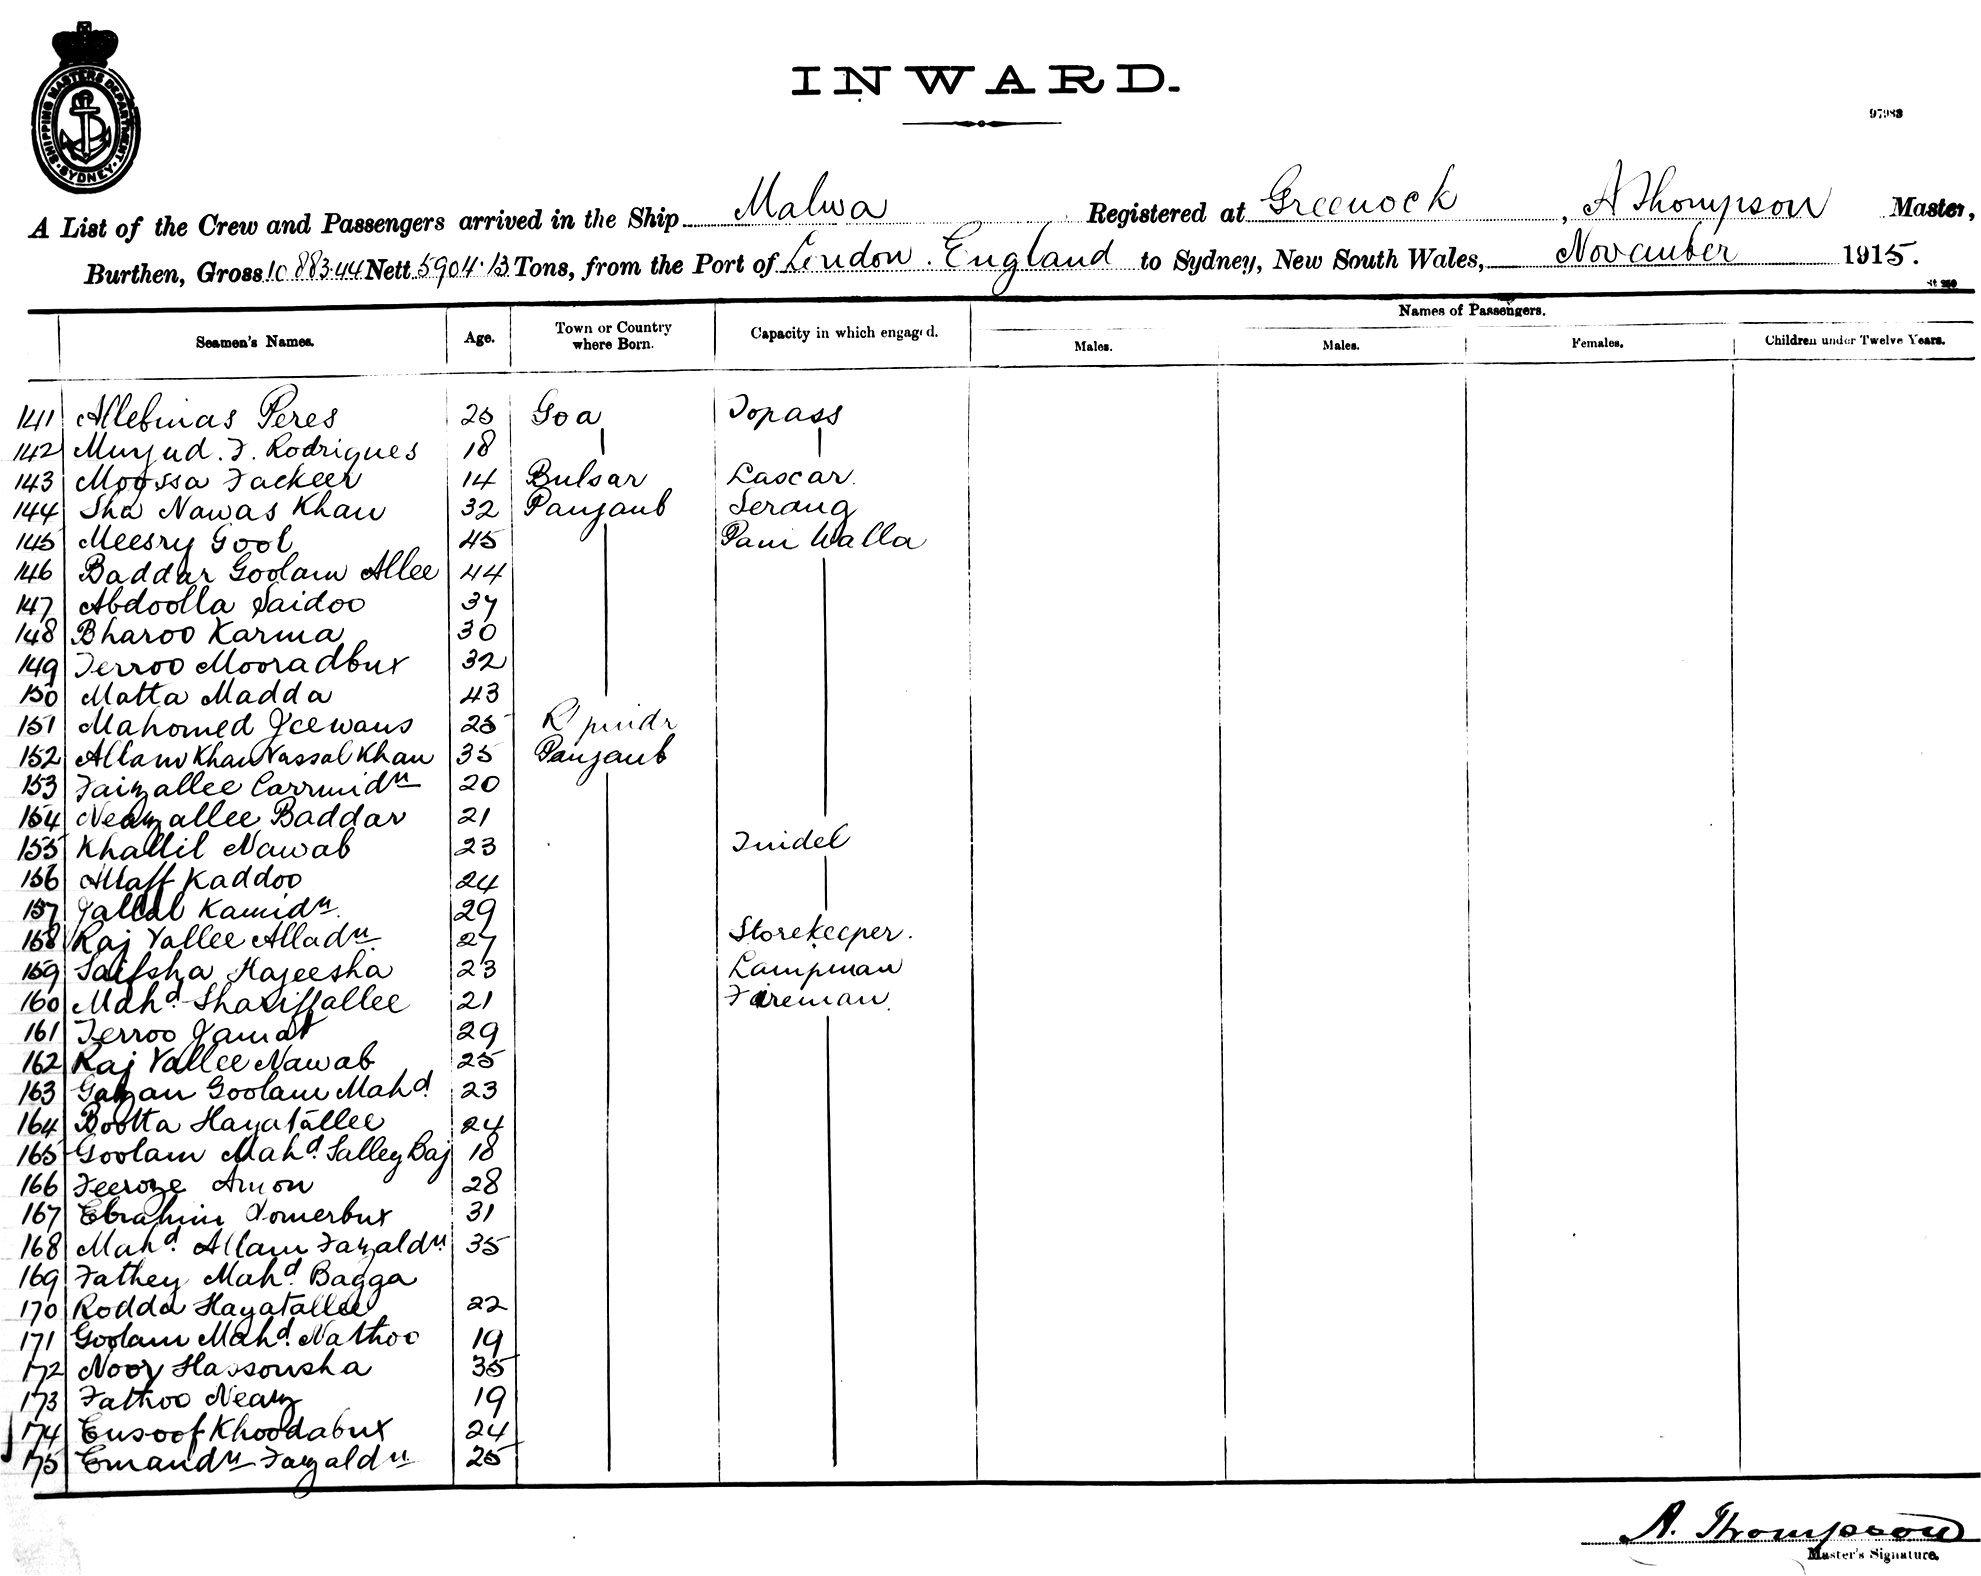 SHIPPING MASTERS DEPARTMENT. SYDNEY.
INWARD.
97983
A List of the Crew and Passengers arrived in the Ship Malwa Registered at Greenock, A Thompson Master,
Burthen, Gross 10883.44 Nett 5904.13 Tons, from the Port of London. England to Sydney, New South Wales, November 1915.
Names of Passengers.
Seamen's Names. Age. Town or Country where Born. Capacity in which engaged. Males. Males. Females. Children under Twelve Years.
141 Peres 25 Goa Topass
142 F. Rodrigues 18
143 Moossa Fackeer 14 Bulsar Lascar.
144 Sha Nawas Khan 32 Panjaub Serang
145 Meesry Gool 45 Pani Walla
146 Baddar Goolam Allee 44
147 Abdoolla Saidoo 37
148 Bharoo Karma 30
149 Ferroo Mooradbux 32
150 Matta Madda 43
151 Mahomed Jeewans 25 R'pindi
152 Allam Khan Nassal Khan 35 Panjaub
153 Faizallee Carmidn 20
154 Neazallee Baddar 21
155 Khallil Nawab 23 Tindel
156 Allaff Kaddoo 24
157 Jallal Kamidn. 29
158 Raj Vallee Alladn. 27 Storekeeper.
159 Saifsha Hajeesha 23 Lampman
160 Mahd. Shariffallee 21 Fireman.
161 Ferroo Jamat 29
162 Raj Vallee Nawab 25
163 Gazan Goolam Mahd. 23
164 Bootta Hayatallee 24
165 Goolam Mahd. Salley Baj 18
166 Feeroze Amon 28
167 Ebrahim Oomerbux 31
168 Mahd. Allam Fazaldn 35
169 Fathey Mahd. Bagga
170 Rodda Hayatallee 22
171 Goolam Mahd. Nathoo 19
172 Noor Hassonsha 35
173 Fathoo Neaz 19
174 Eusoof Khoodabux 24
175 Emandn Fazaldn 25
A. Thompson
Master's Signature.